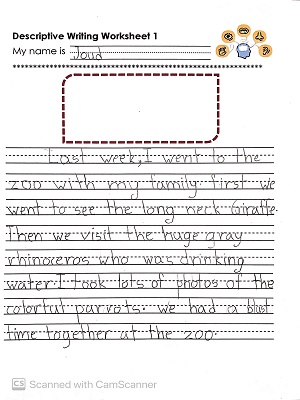 Descriptive Writing Worksheet 1
My name is Joud
Last week, I went to the
zoo with my family. first we
went to see the long neck Giraffe.
Then we visit the huge gray
rhinoceros who was drinking
water. I took lots of photos of the
colorful parrots. we had a blast
time together at the zoo.
CS Scanned with CamScanner